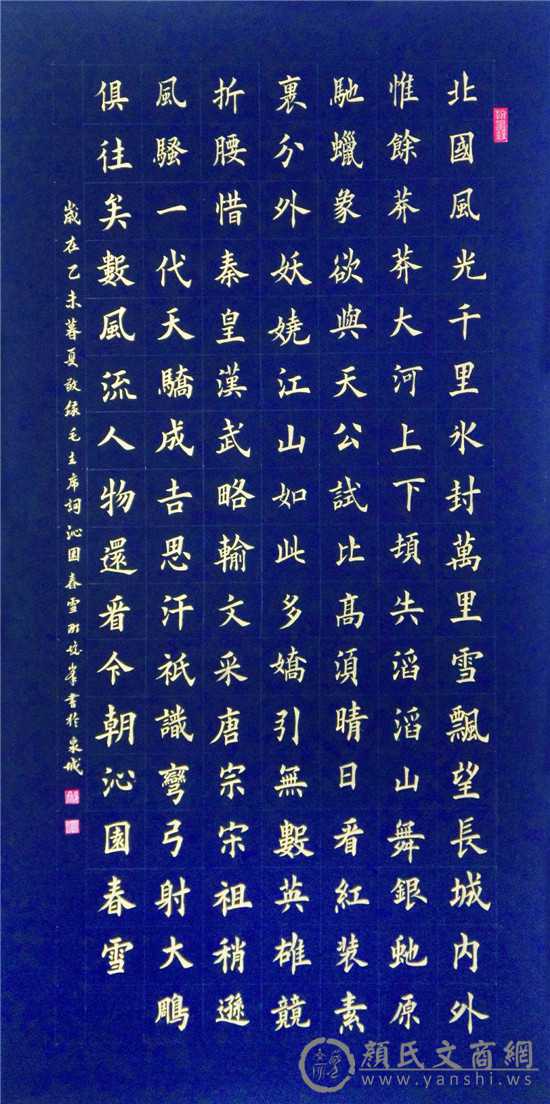 北國風光千里氷封萬里雪飄望長城内外
惟餘莽莽大河上下頓失滔滔山舞銀虵原
馳蠟象欲與天公試比高須晴日看紅装素
裹分外妖嬈江山如此多嬌引無數英雄競
折腰惜秦皇漢武略輸文采唐宗宋祖稍遜
風騷一代天驕成吉思汗祇識彎弓射大鵰
俱往矣數風流人物還看今朝沁園春雪
歲在乙未暮夏敬録毛主席詞沁園春雪峯書於泉城
顏氏文商網
www.yanshi.ws